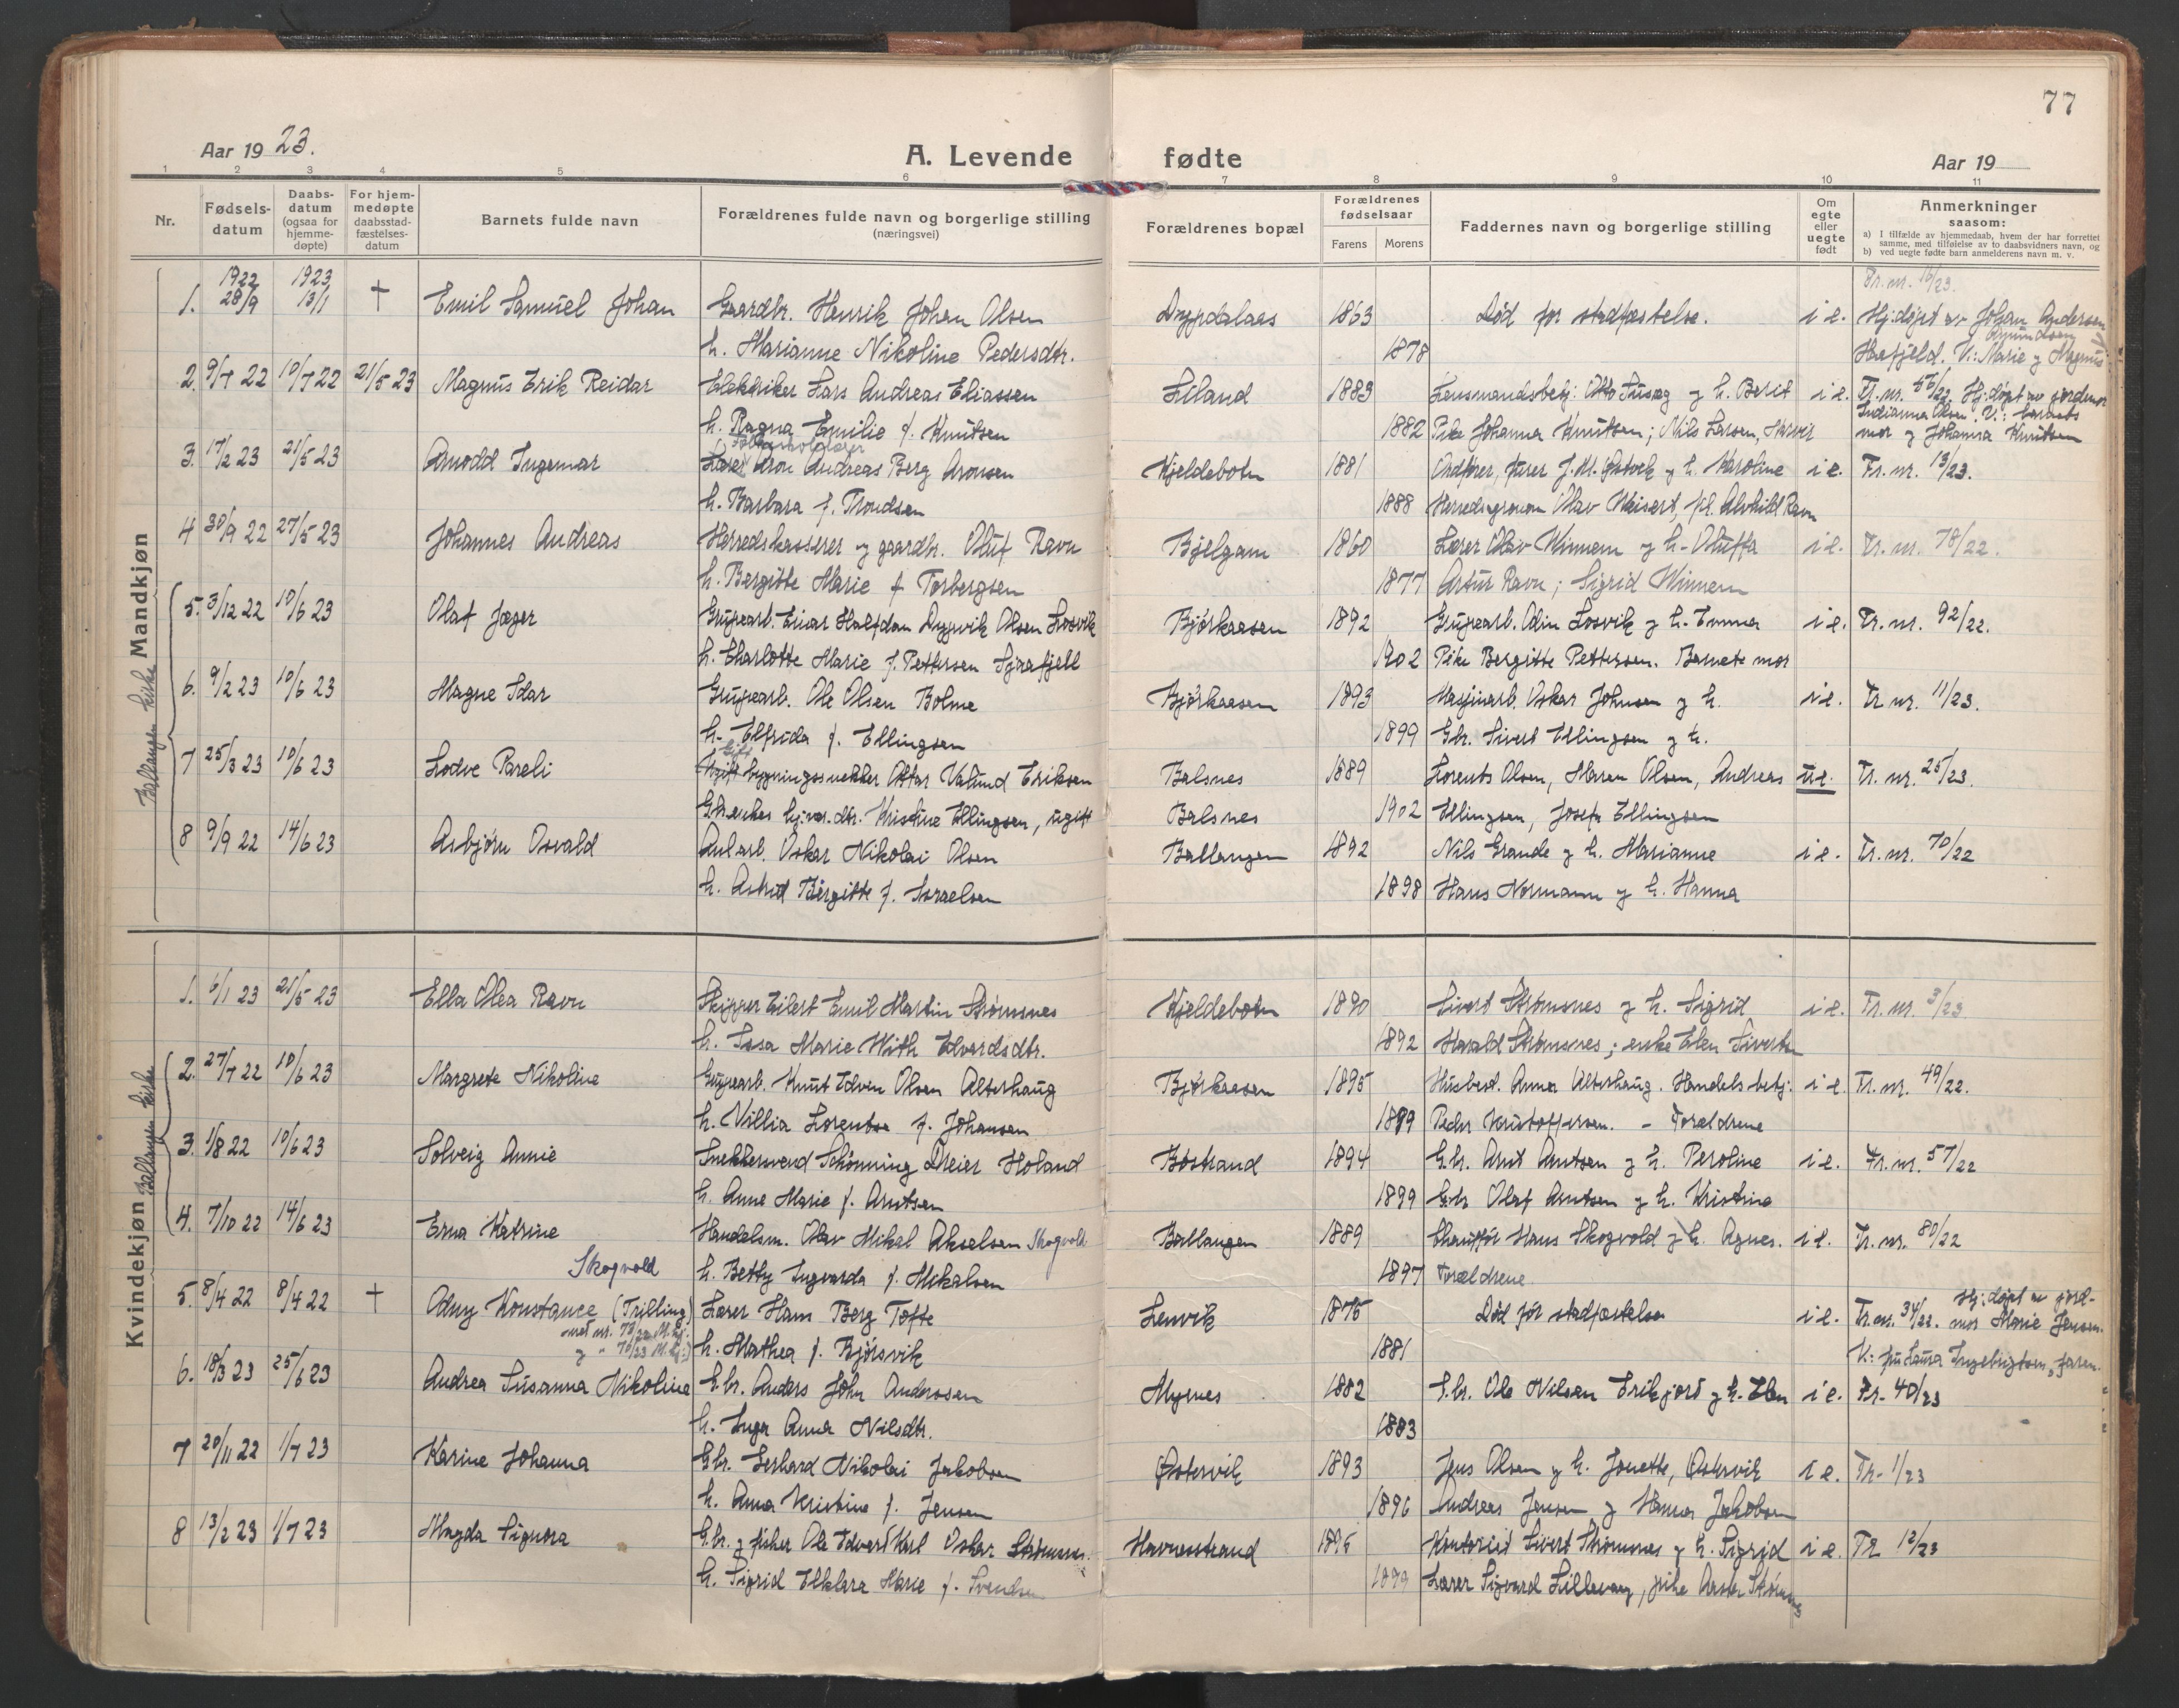 77
Aar 1923.
A. Levende fødte
Aar 19
1 2 3 4 5 6 7 8 9 10 11
Nr.
Fødsels-datum
Daabs-datum (ogsaa for hjemme-døpte)
For hjem-medøpte daabsstad-fæstelses-datum
Barnets fulde navn
Forældrenes fulde navn og borgerlige stilling (næringsvei)
Forældrenes bopæl
Forældrenes fødselsaar
Farens Morens
Faddernes navn og borgerlige stilling
Om egte eller uegte født
Anmerkninger saasom:
a) I tilfælde av hjemmedaab, hvem der har forrettet samme, med tilføielse av to daabsvidners navn, og
b) ved uegte fødte barn anmelderens navn m. v.
Mandkjøn
Ballangen kirke
1922 1923 Tr. nr. 16/23.
1. 28/9 13/1 † Emil Samuel Johan Gaardbr. Henrik Johan Olsen Dypdalaas 1863 Død før stadfæstelse. i e. Hj:døpt av Johan Andersen
h. Marianne Nikoline Pedersdtr. 1878 Haafjeld. V.: Marie og Magnus Amundsen
2. 9/7 22 10/7 22 21/5 23 Magnus Erik Reidar Elektriker Lars Andreas Eliassen Liland 1883 Lensmandsbetj: Otto Susæg og h. Berit i e. Tr. nr. 56/22 Hj:døpt av jordmor
h. Ragna Emilie f. Knutsen 1882 Pike Johanna Knutsen; Nils Larsen, Indianna Olsen V.: barnets mor og Johanna Knutsen
3. 17/2 23 21/5 23 Arnodd Ingemar Lærer Aron Andreas Berg Aronsen Kjeldebotn 1881 Ordfører, furer J. M. og h. Karoline i e. Tr. nr. 13/23.
h. Barbara f. Trondsen 1888 Herredsagronom Olav Weisert, frk. Alvhild Ravn
4 30/9 22 27/5 23 Johannes Andreas Herredskasserer og gaardbr. Oluf Ravn Bjelgam 1860 Lærer Olav Winnem og h. Oluffa i e. Tr. nr. 78/22.
h. Bergitte Marie f. Torbergsen 1877 Artur Ravn; Sigrid Winnem
5. 3/12 22 10/6 23 Olaf Jæger Grupearb. Einar Halfdan Dypvik Olsen Losvik Bjørkaasen 1892 Grupearb. Odin Losvik og h. Emma i e. Tr. nr. 92/22.
h. Charlotte Marie f. Pettersen Sjaafjell 1902 Pike Bergitte Pettersen. Barnets mor
6. 9/2 23 10/6 23 Magne Idar Grupearb. Ole Olsen Bolme Bjørkaasen 1893 Masjinarb. Oskar Johnsen og h. i e. Tr. nr. 11/23.
h. Elfrida f. Ellingsen 1899 Gbr. Sivert Ellingsen og h.
7 25/3 23 10/6 23 Lodve Pareli Gift bygningssnekker Ottar Valund Eriksen Balsnes 1889 Lorents Olsen, Maren Olsen, Andreas u e. Tr. nr. 25/23.
hj.vær. dtr. Kristine Ellingsen, ugift Balsnes 1902 Ellingsen, Josefa Ellingsen
8 9/9 22 14/6 23 Asbjørn Osvald Anl.arb. Oskar Nikolai Olsen Ballangen 1892 Nils Grande og h. Marianne i e. Tr. nr. 70/22
h. Astrid Bergitte f. Israelsen 1898 Hans Normann og h. Hanna
Kvindekjøn
Ballangen kirke
1. 6/1 23 21/5 23 Ella Olea Ravn Skipper Eilert Emil Martin Strømsnes Kjeldebotn 1890 Sivert Strømsnes og h. Sigrid i e. Tr. nr. 3/23
h. Marie With Edvardsdtr. 1892 Harald Strømsnes; enke Elen Sivertsen
2. 27/7 22 10/6 23 Margrete Nikoline Grupearb. Knut Edvin Olsen Alterhaug Bjørkaasen 1895 Husbest. Anna Alterhaug. Handelsbetj: i e. Tr. nr. 49/22.
h. Villia Lorentse f. Johansen 1899 Peder Kristoffersen. - Forældrene
3. 1/8 22 10/6 23 Solveig Annie Snekkersvend Schønning Dreier Holand Bøstrand 1894 G.br. Arnt Arntsen og h. Peroline i e. Tr. nr. 57/22
h. Anne Marie f. Arntsen 1899 Gbr Olaf Arntsen og h. Kristine
4. 7/10 22 14/6 23 Erna Katrine Handelsm. Olav Mikal Akselsen Skogvold Ballangen 1889 Chauffør Hans Skogvold og h. Agnes. i e. Tr. nr. 80/22
Skogvold h. Betty Ingvarda f. Mikalsen 1897 Forældrene
5. 8/4 22 8/4 22 † Odny Konstance (Trilling) Lærer Hans Berg Tofte Lenvik 1875 Død før stadfæstelse i e. Tr. nr. 34/22. Hj:døpt av jord-mor Marie Jensen.
h. Mathea f. Bjørsvik 1881 V.: fru Laura Ingebrigtsen, faren.
6. 18/3 23 25/6 23 Andrea Susanna Nikoline G.br. Anders John Andressen Myrnes 1882 G.br. Ole Nilsen Erikjord og h. Elen i e. Tr. 40/23
h. Inga Anna Nilsdtr. 1883
7 20/11 22 1/7 23 Karine Johanna Gbr. Gerhard Nikolai Jakobsen Østervik 1893 Jens Olsen og h. Jonette, Østervik i e. Tr- 1/23
h. Anna Kristine f. Jensen 1896 Andreas Jensen og Hanna Jakobsen
8 13/2 23 1/7 23 Magda Signora G.br. og fisker Ole Edvard Karl Oskar Strømsnes. Havnesstrand 1895 Kontorist Sivert Strømsnes og h. Sigrid i e. Tr 12/23
h. Sigrid Elklara Marie f. Svendsen 1899 Lærer Sigvard Lillevang, pike Aasta Strømsnes